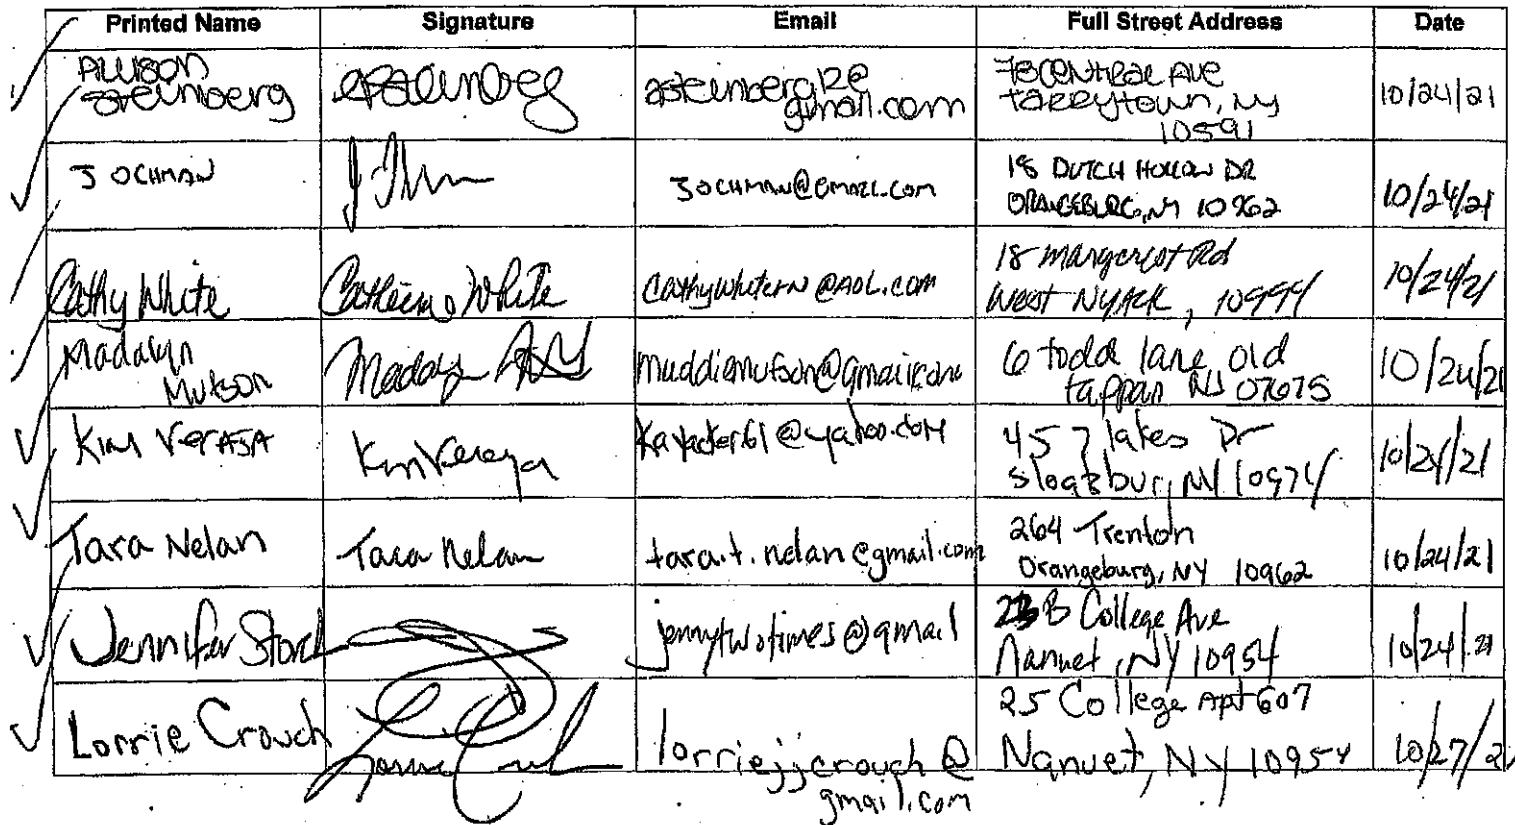 Printed Name Signature Email Full Street Address Date
Allison Steinberg asteinberg12@gmail.com 78 Central Ave Tarrytown, NY 10591 10/24/21
J OCHMAN JOCHMAN@GMAIL.COM 18 DUTCH HOLLOW DR ORANGEBURG, NY 10962 10/24/21
Cathy White Catherine White CathyWhiteRN@AOL.com 18 Rd West NYACK, 10994 10/24/21
Madalyn Mutson 6 todd lane old tappan NJ 07675 10/24/21
Kim Veraja @yahoo.com 45 7 lakes Dr NY 10974 10/24/21
Tara Nelan Tara Nelan tara.t.nelan@gmail.com 264 Trenton Orangeburg, NY 10962 10/24/21
Jennifer Storch jennytwotimes@gmail B College Ave Nanuet, NY 10954 10/24/21
Lorrie Crouch lorriejjcrouch@gmail.com 25 College Apt 607 Nanuet, NY 10954 10/27/2